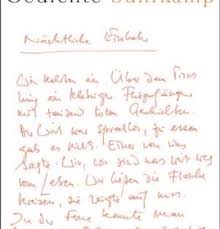 Gedichte Suhrkamp
Nächtliche Einkehr
Wir kehrten ein über dem
in klebriger
mit tausend toten
Der Wirt war sprachlos, zu essen
gab es nichts. Einer von uns
sagte: Wir, wir sind was
vom Leben. Wir ließen die Flasche
kreisen, sie zeigte auf uns.
In der Ferne konnte man